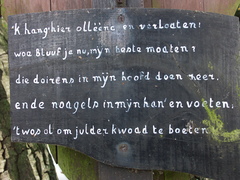 'K hang hier olleene en verloaten:
woa Bluuf je nu, mijn beste moaten?
die doirens in mijn hoofd doen zeer.
ende noagels in mijn han' en voeten.
't was ol om julder kwoad te boeten.